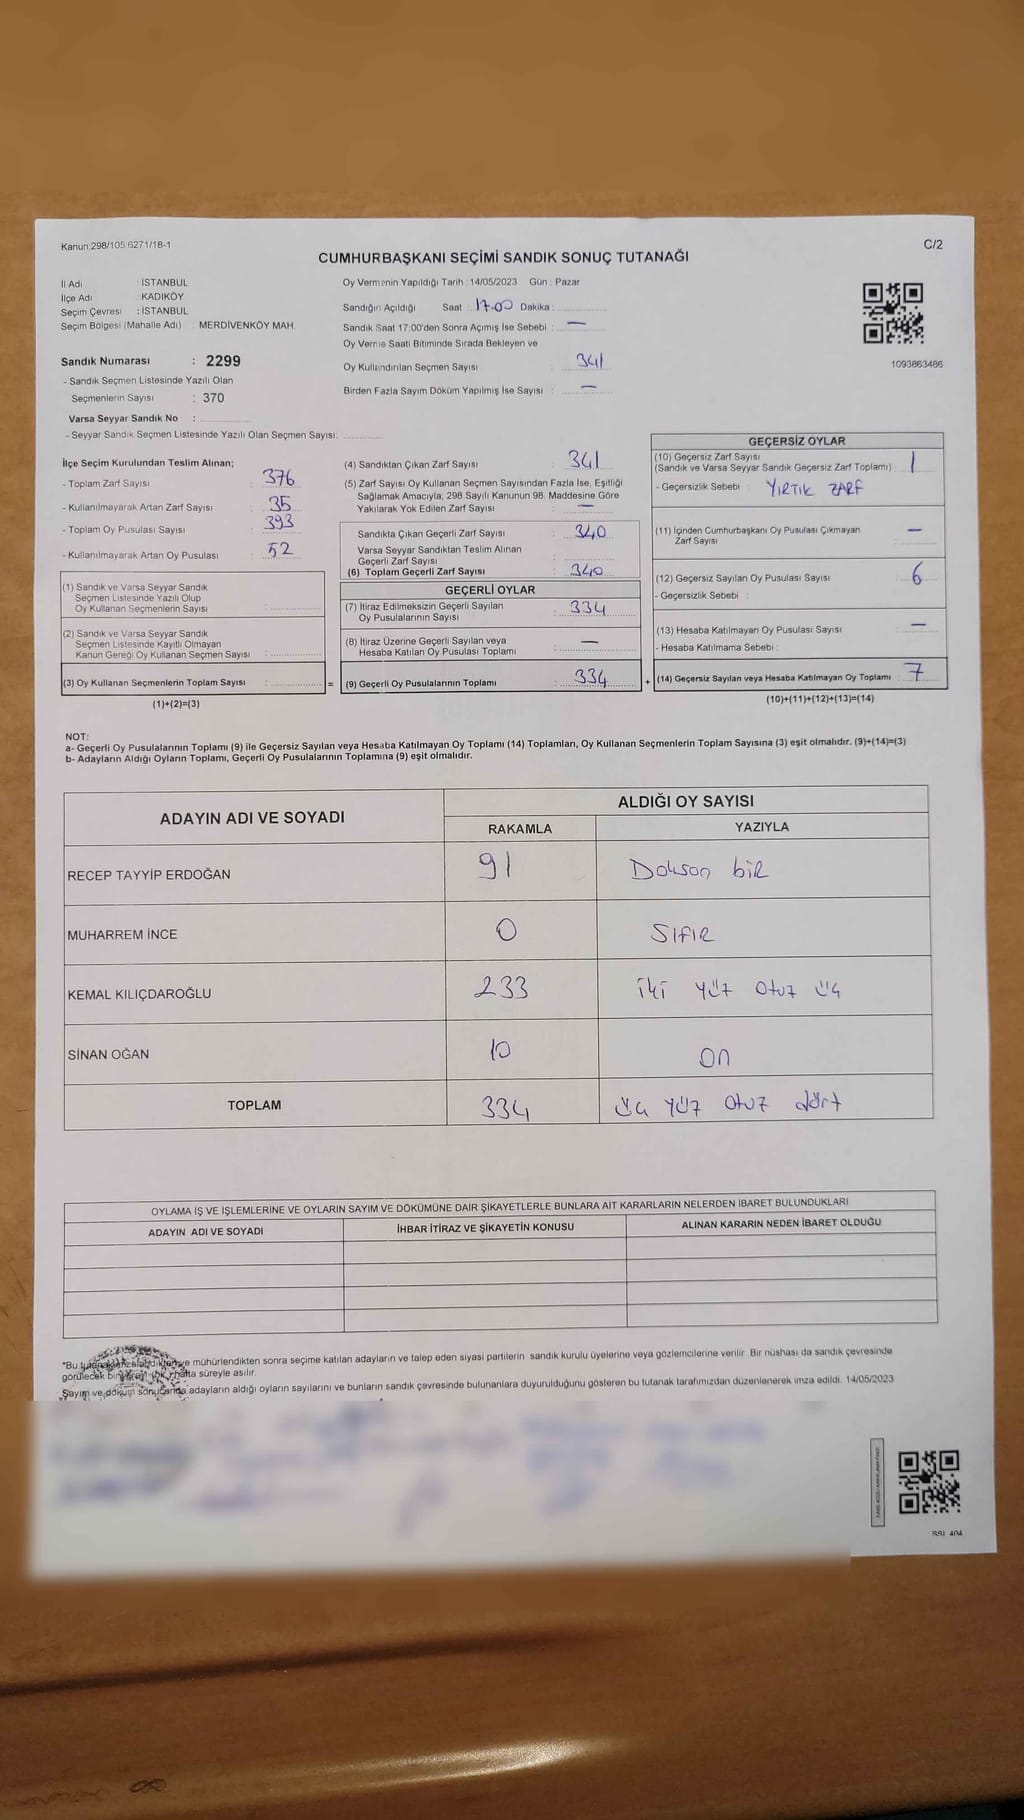 Kanun;298/105 6271/18-1
C/2
CUMHURBAŞKANI SEÇİMİ SANDIK SONUÇ TUTANAĞI
İl Adı : İSTANBUL
İlçe Adı : KADIKÖY
Seçim Çevresi : İSTANBUL
Seçim Bölgesi (Mahalle Adı) : MERDİVENKÖY MAH.
Sandık Numarası : 2299
- Sandık Seçmen Listesinde Yazılı Olan
Seçmenlerin Sayısı : 370
Varsa Seyyar Sandık No :
- Seyyar Sandık Seçmen Listesinde Yazılı Olan Seçmen Sayısı:
Oy Vermenin Yapıldığı Tarih : 14/05/2023 Gün : Pazar
Sandığın Açıldığı Saat : 17.00 Dakika :
Sandık Saat 17:00'den Sonra Açımış İse Sebebi : —
Oy Verme Saati Bitiminde Sırada Bekleyen ve
Oy Kullandırılan Seçmen Sayısı : 341
Birden Fazla Sayım Döküm Yapılmış İse Sayısı : —
1093863486
İlçe Seçim Kurulundan Teslim Alınan;
- Toplam Zarf Sayısı : 376
- Kullanılmayarak Artan Zarf Sayısı : 35
- Toplam Oy Pusulası Sayısı : 393
- Kullanılmayarak Artan Oy Pusulası : 52
(1) Sandık ve Varsa Seyyar Sandık
Seçmen Listesinde Yazılı Olup
Oy Kullanan Seçmenlerin Sayısı :
(2) Sandık ve Varsa Seyyar Sandık
Seçmen Listesinde Kayıtlı Olmayan
Kanun Gereği Oy Kullanan Seçmen Sayısı :
(3) Oy Kullanan Seçmenlerin Toplam Sayısı : =
(1)+(2)=(3)
(4) Sandıktan Çıkan Zarf Sayısı : 341
(5) Zarf Sayısı Oy Kullanan Seçmen Sayısından Fazla İse, Eşitliği
Sağlamak Amacıyla; 298 Sayılı Kanunun 98. Maddesine Göre
Yakılarak Yok Edilen Zarf Sayısı : —
Sandıkta Çıkan Geçerli Zarf Sayısı : 340
Varsa Seyyar Sandıktan Teslim Alınan
Geçerli Zarf Sayısı :
(6) Toplam Geçerli Zarf Sayısı : 340
GEÇERLİ OYLAR
(7) İtiraz Edilmeksizin Geçerli Sayılan
Oy Pusulalarının Sayısı : 334
(8) İtiraz Üzerine Geçerli Sayılan veya
Hesaba Katılan Oy Pusulası Toplamı : —
(9) Geçerli Oy Pusulalarının Toplamı : 334 +
GEÇERSİZ OYLAR
(10) Geçersiz Zarf Sayısı
(Sandık ve Varsa Seyyar Sandık Geçersiz Zarf Toplamı) : 1
- Geçersizlik Sebebi : YIRTIK ZARF
(11) İçinden Cumhurbaşkanı Oy Pusulası Çıkmayan
Zarf Sayısı : —
(12) Geçersiz Sayılan Oy Pusulası Sayısı : 6
- Geçersizlik Sebebi :
(13) Hesaba Katılmayan Oy Pusulası Sayısı : —
- Hesaba Katılmama Sebebi :
(14) Geçersiz Sayılan veya Hesaba Katılmayan Oy Toplamı : 7
(10)+(11)+(12)+(13)=(14)
NOT:
a- Geçerli Oy Pusulalarının Toplamı (9) ile Geçersiz Sayılan veya Hesaba Katılmayan Oy Toplamı (14) Toplamları, Oy Kullanan Seçmenlerin Toplam Sayısına (3) eşit olmalıdır. (9)+(14)=(3)
b- Adayların Aldığı Oyların Toplamı, Geçerli Oy Pusulalarının Toplamına (9) eşit olmalıdır.
ADAYIN ADI VE SOYADI
ALDIĞI OY SAYISI
RAKAMLA YAZIYLA
RECEP TAYYİP ERDOĞAN 91 Doksan bir
MUHARREM İNCE 0 Sıfır
KEMAL KILIÇDAROĞLU 233 iki yüz otuz üç
SİNAN OĞAN 10 on
TOPLAM 334 üç yüz otuz dört
OYLAMA İŞ VE İŞLEMLERİNE VE OYLARIN SAYIM VE DÖKÜMÜNE DAİR ŞİKAYETLERLE BUNLARA AİT KARARLARIN NELERDEN İBARET BULUNDUKLARI
ADAYIN ADI VE SOYADI İHBAR İTİRAZ VE ŞİKAYETİN KONUSU ALINAN KARARIN NEDEN İBARET OLDUĞU
*Bu mühürlendikten sonra seçime katılan adayların ve talep eden siyasi partilerin sandık kurulu üyelerine veya gözlemcilerine verilir .Bir nüshası da sandık çevresinde
görülecek bir hafta süreyle asılır.
Sayım ve döküm sonucunda adayların aldığı oyların sayılarını ve bunların sandık çevresinde bulunanlara duyurulduğunu gösteren bu tutanak tarafımızdan düzenlenerek imza edildi. 14/05/2023
SSI 404